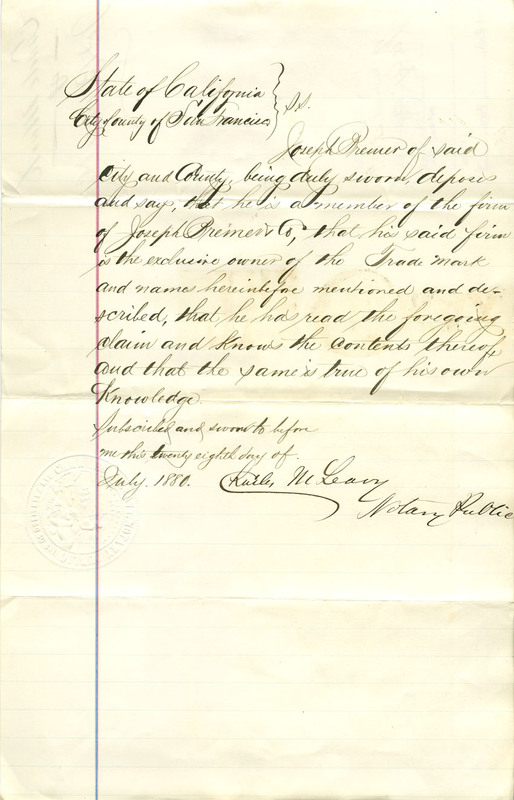 State of California
City & County of San Francisco } S.S.
Joseph Bremer of said
City and County, being duly sworn, deposes
and says, that he is a member of the firm
of Joseph Bremer & Co, that his said firm
is the exclusive owner of the Trade Mark
and names hereinbefore mentioned and de-
scribed, that he has read the foregoing
claim and knows the contents thereof
and that the same is true of his own
Knowledge.
Subscribed and sworn to before
me this twenty eighth day of
July. 1880.
Notary Public